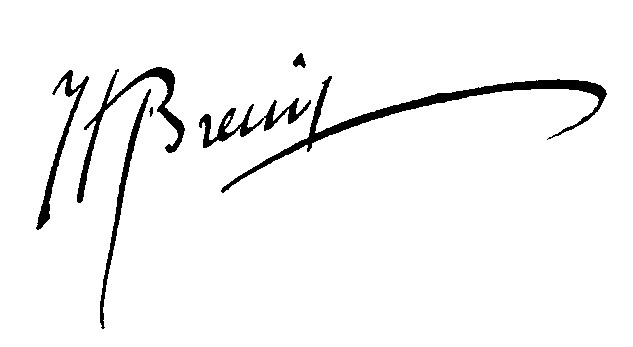 H Breuil